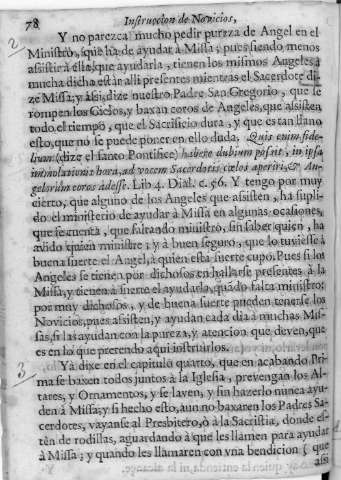 78 Instruccion de Novicios,
2 Y no parezca mucho pedir purza de Angel en el
Ministro, que ha de ayudar à Missa; pues siendo menos
assistir à ella, que ayudarla, tienen los mismos Angeles à
mucha dicha estàr alli presentes mientras el Sacerdote di-
ze Missa; y assi, dize nuestro Padre San Gregorio, que se
rompen los Cielos, y baxan coros de Angeles, que assisten
todo el tiempo, que el Sacrificio dura, y que es tan llano
esto, que no se puede poner en ello duda. Quis enim fide-
lium (dize el santo Pontifice) habere dubium possit, in ipsa
immolationis hora, ad vocem Sacerdotis cœlos aperiri, & An-
gelorum coros adesse. Lib 4. Dial. c. 56. Y tengo por muy
cierto, que alguno de los Angeles que assisten, ha supli-
do el ministerio de ayudar à Missa en algunas ocasiones,
que se cuenta, que faltando ministro, sin saber quien, ha
avido quien ministre; y à buen seguro, que lo tuviesse à
buena suerte el Angel, à quien esta suerte cupo. Pues si los
Angeles se tienen por dichosos en hallarse presentes à la
Missa, y tienen à suerte el ayudarlo, quãdo falta ministro;
por muy dichosos, y de buena suerte pueden tenerse los
Novicios, pues assisten, y ayudan cada dia à muchas Mis-
sas, si las ayudan con la pureza, y atencion que deven, que
es en lo que pretendo aqui instruirlos.
3 Yà dixe en el capitulo quarto, que en acabando Pri-
ma se baxen todos juntos à la Iglesia, prevengan los Al-
tares, y Ornamentos, y se laven, y sin hazerlo nunca ayu-
den à Missa; y si hecho esto, aun no baxaren los Padres Sa-
cerdotes, vayanse al Presbitero, ò à la Sacristia, donde es-
tèn de rodillas, aguardando à que les llamen para ayudar
à Missa; y quando les llamaren con vna bendicion (que
assi